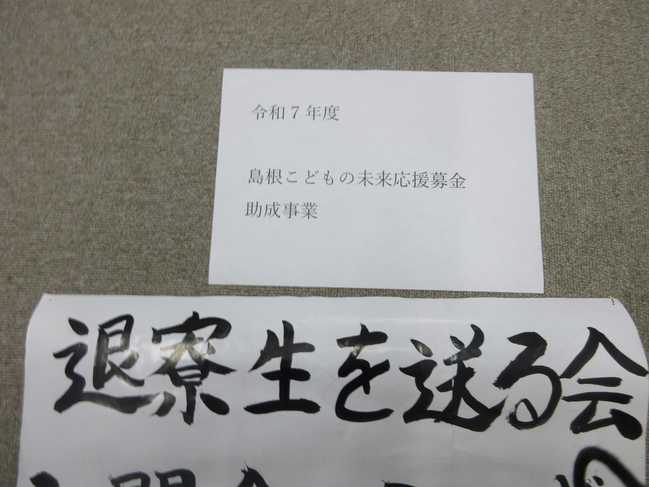 令和７年度
島根こどもの未来応援募金
助成事業
退寮生を送る会